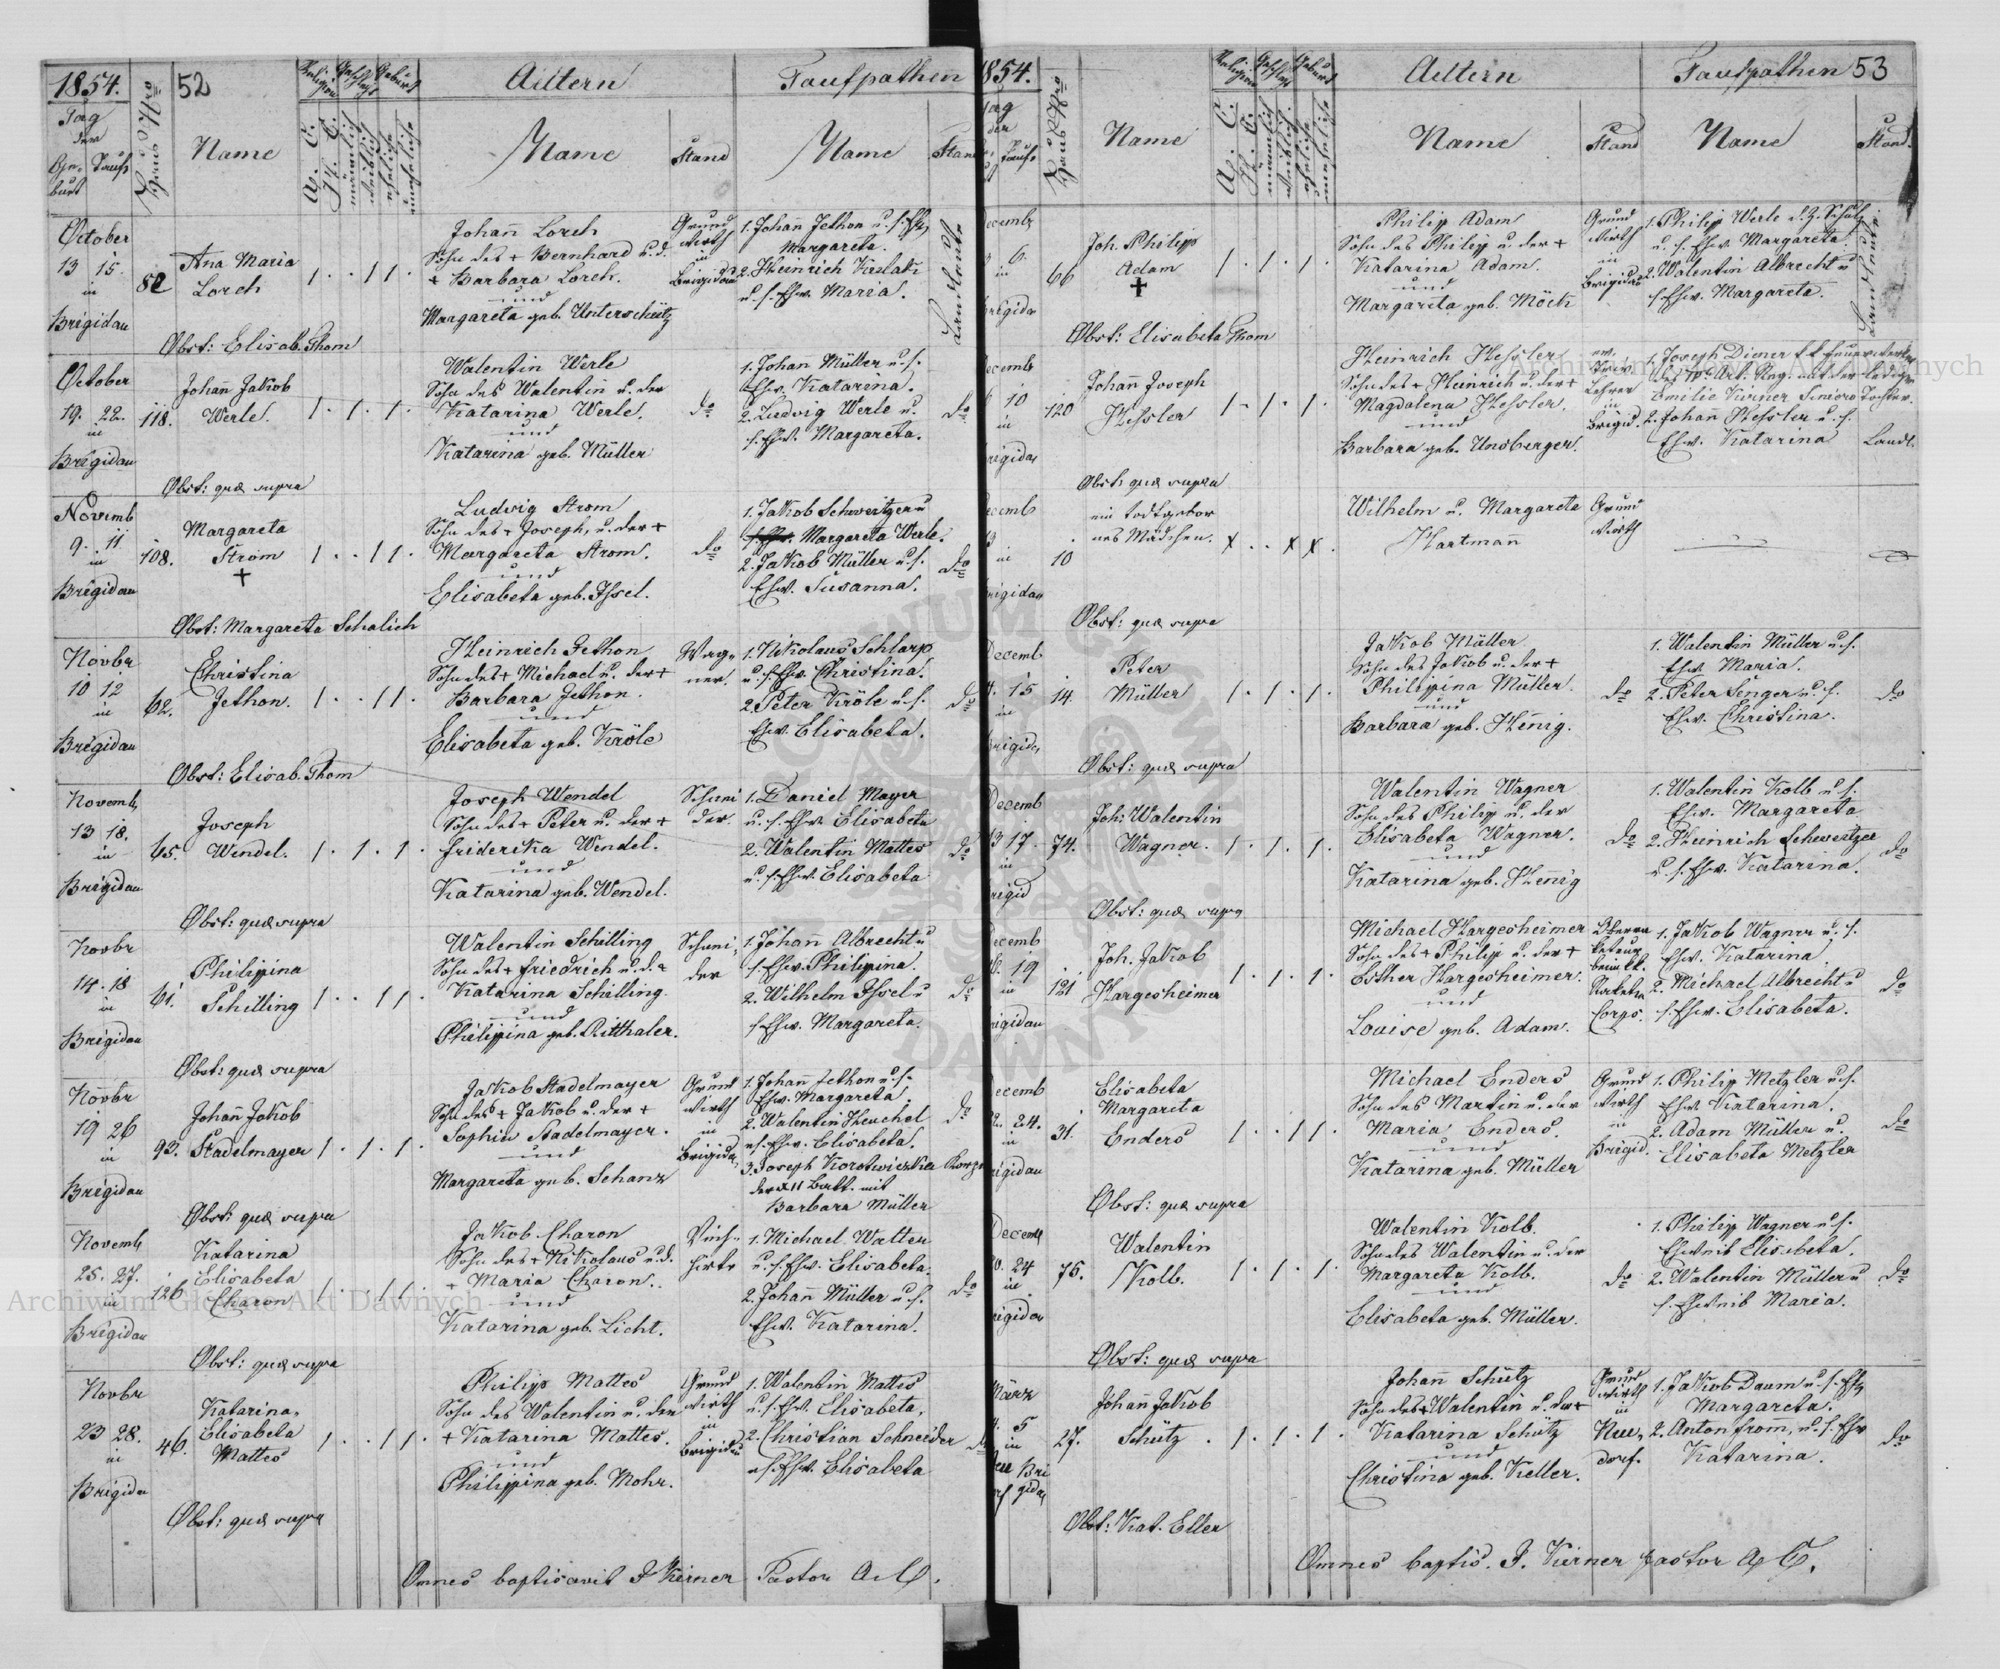 1854.
52
Religion
Geschlecht
Geburt
Aeltern
Taufpathen
Tag
der
Geburt Taufe
Haus Nro
Name
A. C.
H. C.
männlich
weiblich
eheliche
uneheliche
Name
Stand
Name
Stand
October
13 15.
in
Brigidau
82
Ana Maria
Lorch
1 . . 1 1 .
Johann Lorch
Sohn des + Bernhard u. d.
+ Barbara Lorch.
und
Margareta geb. Unterschütz
Grund
wirth
in
Brigidau
1. Johann Jethon u. s. Ehw
Margareta.
2. Heinrich Kullak
u. s. Ehw. Maria.
Landleute
Obst: Elisab. Thom
October
19. 22.
in
Brigidau
118.
Johann Jakob
Werle.
1 . 1 . 1 .
Valentin Werle
Sohn des Valentin u. der
Katarina Werle.
und
Katarina geb. Müller
do
1. Johan Müller u. s.
Ehw. Katarina.
2. Ludvig Werle u.
s. Ehw. Margareta.
do
Obst: quæ supra
Novemb
9. 11
in
Brigidau
108.
Margareta
Strom
+
1 . . 1 1 .
Ludvig Strom
Sohn des + Joseph, u. der +
Margareta Strom.
und
Elisabeta geb. Issel.
do
1. Jakob Schweitzer u
Margareta Werle.
2. Jakob Müller u. s.
Ehw. Susanna.
do
Obst: Margareta Schalich
Novbr
10 12
in
Brigidau
62.
Christina
Jethon.
1 . . 1 1 .
Heinrich Jethon
Sohn des + Michael u. der +
Barbara Jethon.
und
Elisabeta geb. Kröle
Wag-
ner.
1. Nikolaus Schlarp
u. s. Ehw. Christina.
2. Peter Kröle u. s.
Ehw. Elisabeta.
do
Obst: Elisab. Thom
Novemb
13 18.
in
Brigidau
65.
Joseph
Wendel.
1 . 1 . 1 .
Joseph Wendel
Sohn des + Peter u. der +
Friderika Wendel.
und
Katarina geb. Wendel.
Schmi
der.
1. Daniel Mayer
u. s. Ehw. Elisabeta
2. Valentin Mattes
u. s. Ehw. Elisabeta
do
Obst: quæ supra
Novbr
14. 18
in
Brigidau
61.
Philippina
Schilling
1 . . 1 1 .
Valentin Schilling
Sohn des + Friedrich u. d. +
Katarina Schilling.
und
Philippina geb. Ritthaler.
Schmi-
der
1. Johann Albrecht u
s. Ehw. Philippina.
2. Wilhelm Issel u
s. Ehw. Margareta.
do
Obst: quæ supra
Novbr
19 26
in
Brigidau
92.
Johann Jakob
Stadelmayer
1 . 1 . 1 .
Jakob Stadelmayer
Sohn des + Jakob u. der +
Sophie Stadelmayer.
und
Margareta geb. Schanz
Grund
wirth
in
Brigidau
1. Johann Jethon u. s.
Ehw. Margareta.
2. Valentin Heuchel
u. s. Ehw. Elisabeta.
3. Joseph Korotwiczka
der Batt. mit
Barbara Müller
do
Obst: quæ supra
Novemb
25. 27.
in
Brigidau
126
Katarina
Elisabeta
Charon
1 . . 1 1 .
Jakob Charon
Sohn des + Nikolaus u. d.
+ Maria Charon.
und
Katarina geb. Licht.
Vieh-
hirte
1. Michael Walter
u. s. Ehw. Elisabeta.
2. Johan Müller u. s.
Ehw. Katarina.
do
Obst: quæ supra
Novbr
23 28.
in
Brigidau
46.
Katarina
Elisabeta
Mattes
1 . . 1 1 .
Philipp Mattes
Sohn des Valentin u. der
+ Katarina Mattes.
und
Philippina geb. Mohr.
Grund
wirth
in
Brigidau
1. Valentin Mattes
u. s. Ehw. Elisabeta,
2. Christian Schneider
u. s. Ehw. Elisabeta
do
Obst: quæ supra
Omnes baptisavit J. Kierner Pastor A. C.
1854.
Religion
Geschlecht
Geburt
Aeltern
Taufpathen
53
Tag
der
Taufe
Haus Nro
Name
A. C.
H. C.
männlich
weiblich
eheliche
uneheliche
Name
Stand
Name
Stand.
Decemb
6.
in
Brigidau
66
Joh. Philipp
Adam
+
1 . 1 . 1 .
Philip Adam
Sohn des Philip u. der +
Katarina Adam.
und
Margareta geb. Möck
Grund
wirth
in
Brigidau
1. Philip Werle d. Z. Schulz
u. s. Ehw. Margareta.
2. Valentin Albrecht u
s. Ehw. Margareta.
Landleute
Obst: Elisabeta Thom
Decemb
6 10
in
Brigidau
120
Johann Joseph
Hessler
1 . 1 . 1 .
Heinrich Hessler
Sohn des + Heinrich u. der +
Magdalena Hessler.
und
Barbara geb. Unsberger.
ev.
Lehrer
in
Brigid.
1. Joseph Diener k. k. Feuerwerker
des Art. Rng. mit der ledigen
Emilie Kierner Seniors Tochter.
2. Johann Hessler u. s.
Ehw. Katarina
Landl.
Obst: quæ supra
Decemb
13
in
Brigidau
10
ein todtgebor
nes Mädchen.
x . . x x .
Wilhelm u. Margareta
Hartmann
Grund
wirth
Obst: quæ supra
Decemb
15
in
Brigidau
14
Peter
Müller
1 . 1 . 1 .
Jakob Müller
Sohn des Jakob u. der +
Philippina Müller.
und
Barbara geb. Hennig.
do
1. Valentin Müller u. s.
Ehw. Maria.
2. Peter Senger u. s.
Ehw. Christina.
do
Obst: quæ supra
Decemb
13 17.
in
Brigid
74.
Joh: Valentin
Wagner.
1 . 1 . 1 .
Valentin Wagner
Sohn des Philip u. der
Elisabeta Wagner.
und
Katarina geb. Hennig
do
1. Valentin Kolb u. s.
Ehw. Margareta
2. Heinrich Schweitzer
u. s. Ehw. Katarina.
do
Obst: quæ supra
Decemb
19
in
Brigidau
121
Joh. Jakob
Hargesheimer
1 . 1 . 1 .
Michael Hargesheimer
Sohn des + Philip u. der +
Esther Hargesheimer.
und
Louise geb. Adam.
beim k. k.
Raketen
Corps.
1. Jakob Wagner u. s.
Ehw. Katarina.
2. Michael Albrecht u
s. Ehw. Elisabeta.
do
Decemb
22. 24.
in
Brigidau
31.
Elisabeta
Margareta
Enders
1 . . 1 1 .
Michael Enders
Sohn des Martin u. der
Maria Enders.
und
Katarina geb. Müller
Grund
wirth
in
Brigid.
1. Philip Metzler u. s.
Ehw. Katarina.
2. Adam Müller u.
Elisabeta Metzler
do
Obst: quæ supra
Decemb
24
in
Brigidau
75.
Valentin
Kolb.
1 . 1 . 1 .
Valentin Kolb.
Sohn des Valentin u. der
Margareta Kolb.
und
Elisabeta geb. Müller.
do
1. Philip Wagner u. s.
Eheweib Elisabeta.
2. Valentin Müller u
s. Eheweib Maria.
do
Obst: quæ supra
März
5
in
Bri
gidau
27.
Johann Jakob
Schütz.
1 . 1 . 1 .
Johann Schütz
Sohn des + Valentin u. der +
Katarina Schütz
und
Christina geb. Keller.
Grund
wirth
in
Neu-
dorf.
1. Jakob Daum u. s. Ehw
Margareta.
2. Anton Fromm, u. s. Ehw
Katarina.
do
Obst: Kat. Eller
Omnes baptis. J. Kierner pastor A C.
Archiwum Główne Akt Dawnych
Archiwum Główne Akt Dawnych